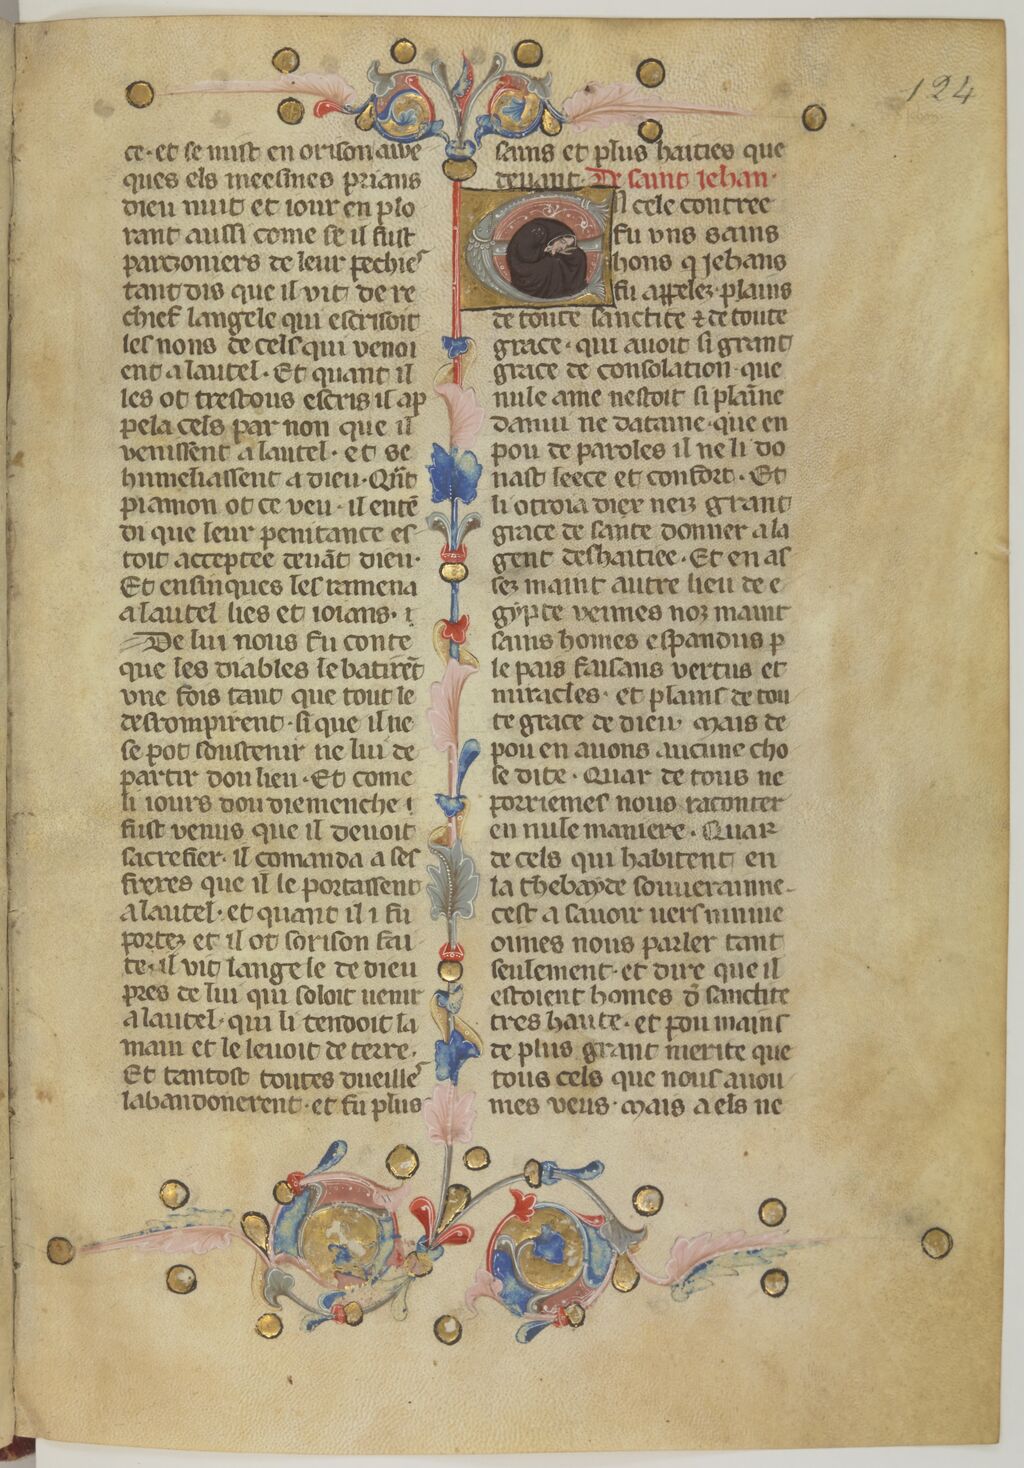 124
ce·et se mist en orison awe
ques els meesmes prians
dieu nuit et iour en plo
rant aussi come se il fust
parconiers de leur pechie
tant dis que il vit de re
chief langele qui escrisoit
les nons de cels qui venoi
ent a lautel·Et quant il
les ot trestous escris il ap
pela cels par non que il
venissent a lautel·et se
humeliassent a dieu·Qn̄t
piamon ot ce veu·il entē
di que leur penitance es
toit acceptee deuāt dieu·
Et ensinques les ramena
a lautel lies et ioians· i
De lui nous fu conte
que les diables le batirēt
vne fois tant que tout le
desrompirent·si que il ne
se pot soustenir ne lui de
partir dou lieu·Et come
li iours dou diemenche i
fust venus que il deuoit
sacrefier·il comanda a ses
freres que il le portassent
a lautel·et quant il i fu
portez et il ot sorison fai
te·il vit langele de dieu
pres de lui qui soloit uenir
a lautel·qui li tendoit la
main et le leuoit de terre·
Et tantost toutes dueille
labandonerent·et fu plus
sains et plus haities que
deuant·De saint jehan·
N cele contree
fu vns sains
hons q jehans
fu appelez·plains
de toute sanctite ⁊ de toute
grace·qui auoit si grant
grace de consolation·que
nule ame nestoit si plaīne
danui ne dataine·que en
pou de paroles il ne li do
nast leece et confort·Et
li otroia diex neiz grant
grace de sante donner a la
gent deshaitiee·Et en as
sez maint autre lieu de e
gypte veimes noz maint
sains homes espandus p
le pais faisans vertus et
miracles·et plains de tou
te grace de dieu·mais de
pou en auons aucune cho
se dite·Quar de tous ne
porriemes nous raconter
en nule maniere·Quar
de cels qui habitent en
la thebayde souuerainne-
cest a sauoir uers
oimes nous parler tant
seulement·et dire que il
estoient homes d̄ sanctite
tres haute·et pou mains
de plus grant merite que
tous cels que nous auou
mes veus·mais a els ne